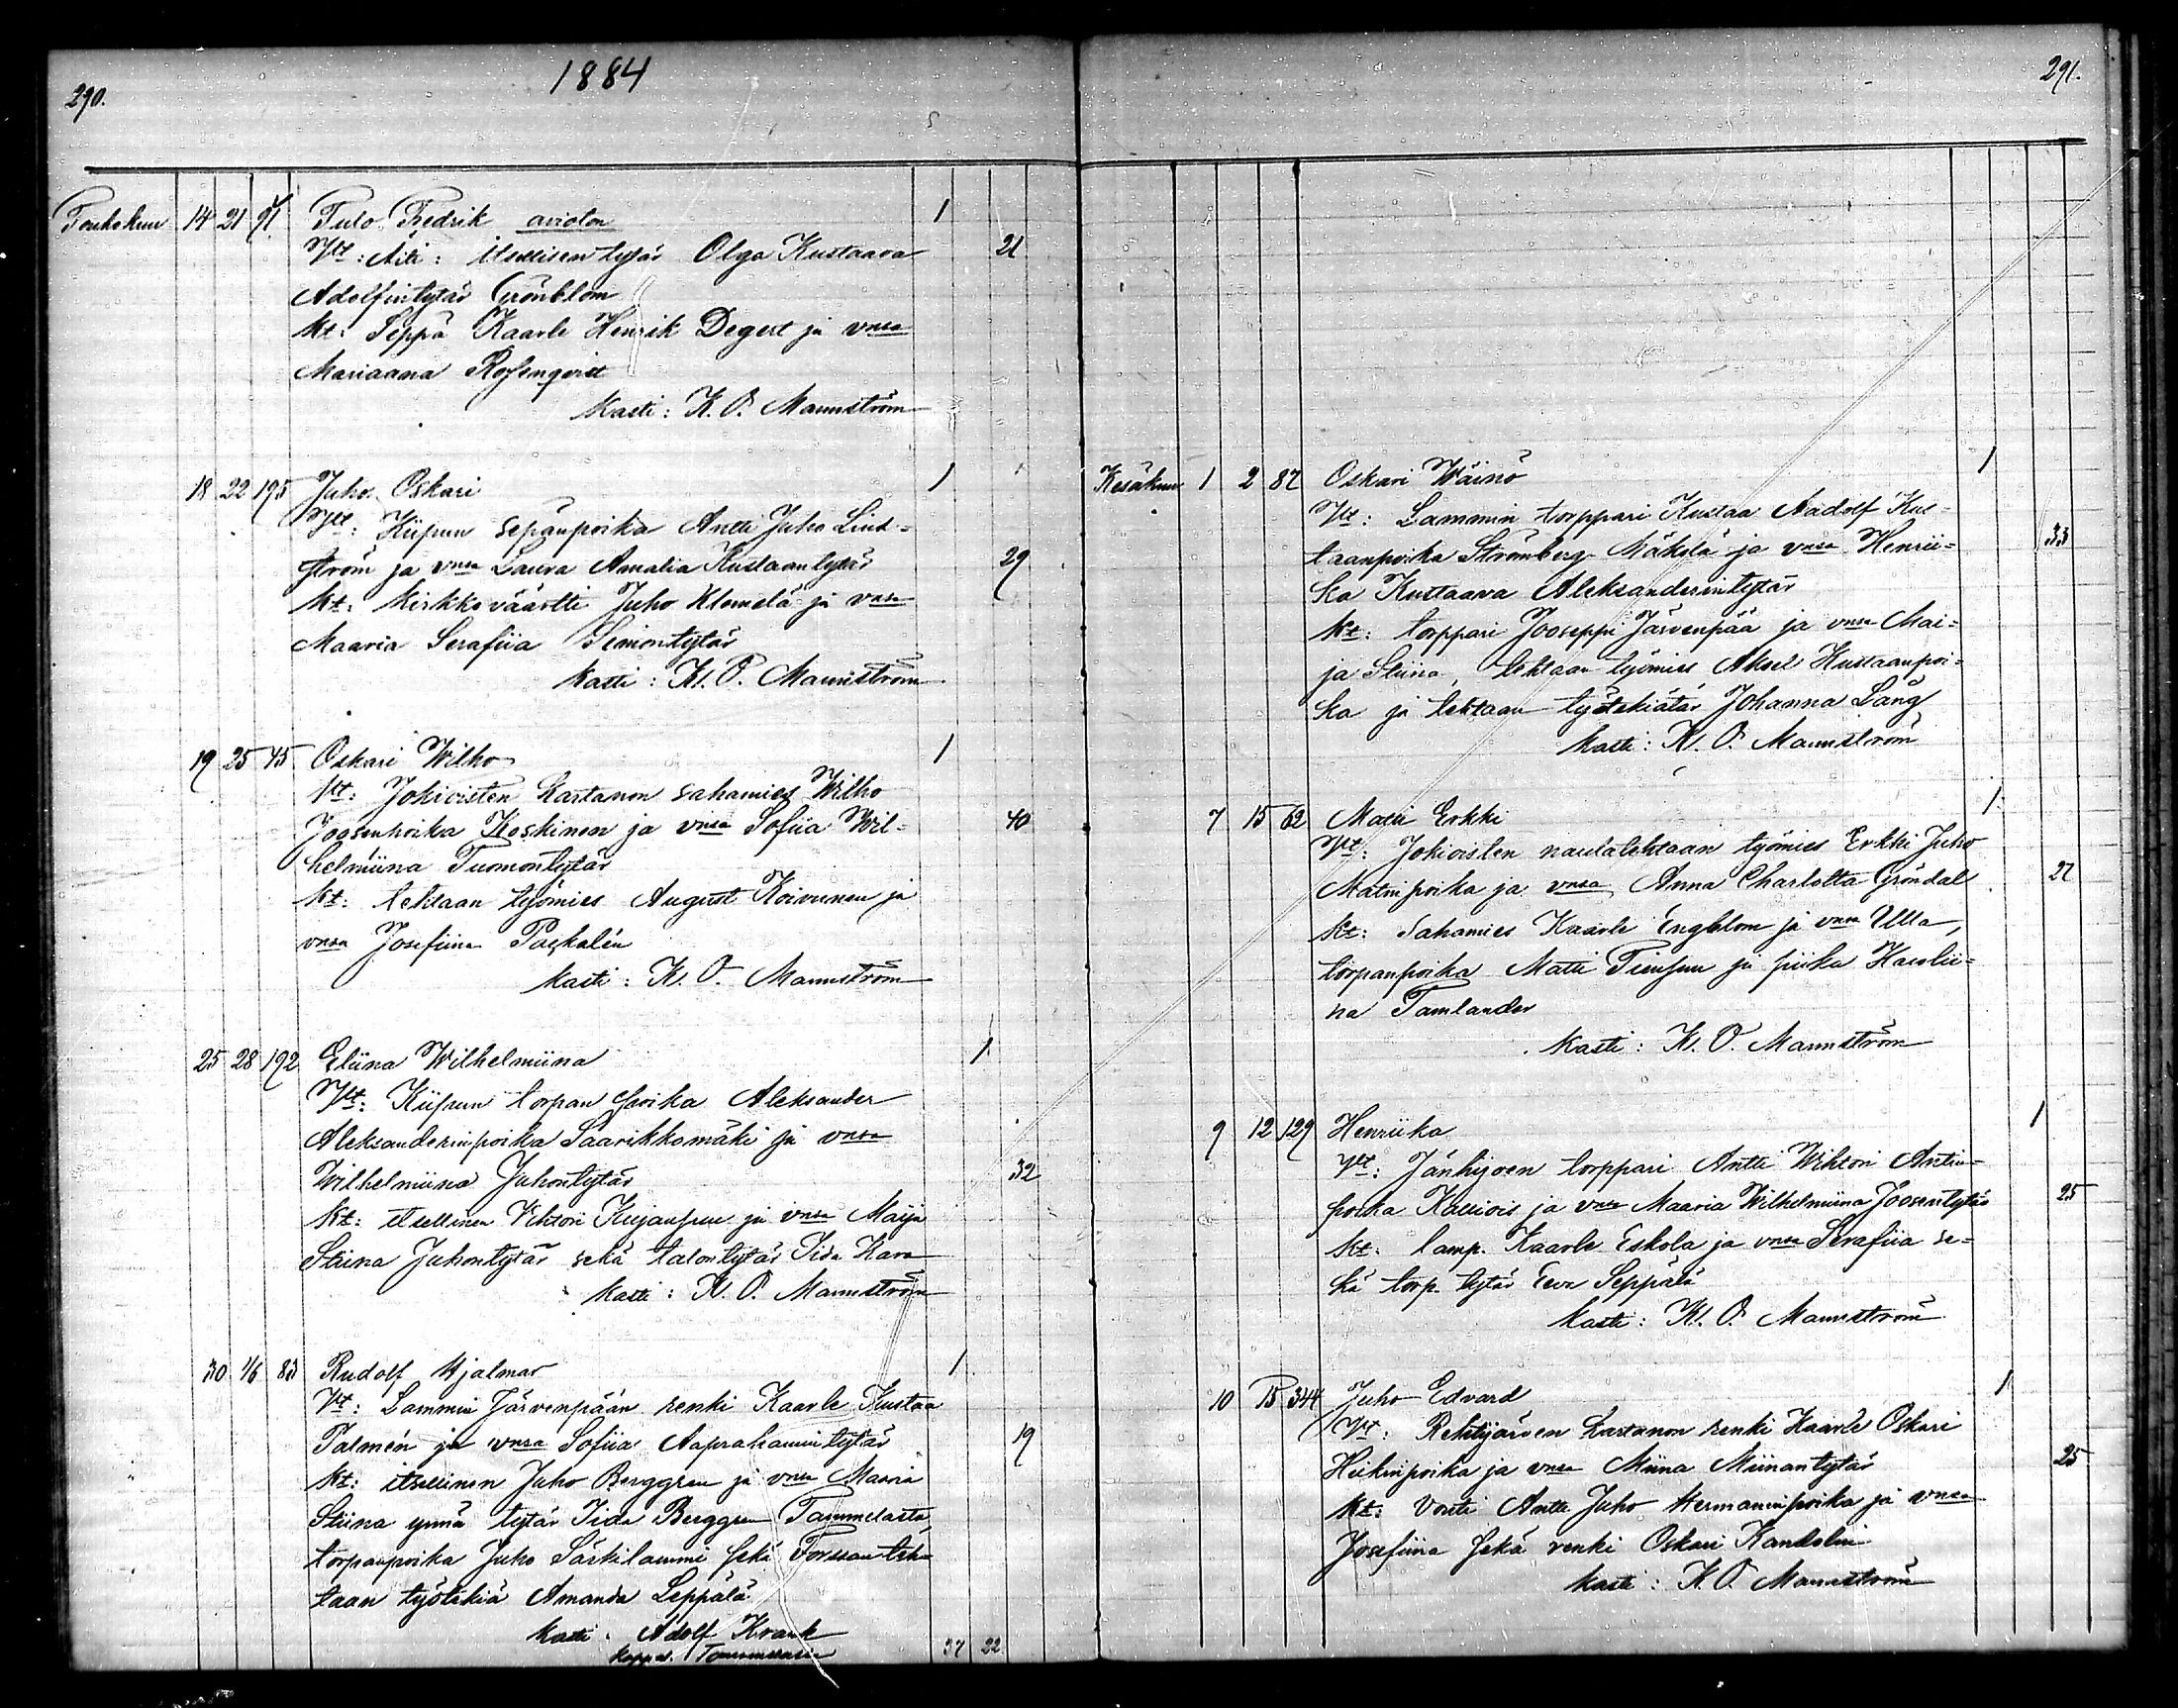 1884
290.
Toukokuu 14 21 91. Tulo Fredrik avioton 1
Vt: Äiti: itsellisen tytär Olga Kustaava 21
Adolfintytär Grönblom
Kt: Seppä Kaarle Henrik Degert ja vnsa
Mariaana Rosenqvist
Kasti: K. O. Mannström
18 22 195 Juho Oskari 1
Vt: Kiipun sepänpoika Antti Juho Lind=
ström ja vnsa Laura Amalia Kustaantytär 29
Kt: Kirkkoväärtti Juho Klemelä ja vnsa
Maaria Serafiia Simontytär
Kasti: K. O. Mannström
19 25 45 Oskari Wilho 1
Vt: Jokioisten kartanon sahamies Wilho
Joosenpoika Koskinen ja vnsa Sofiia Wil= 40
helmiina Tuomontytär
Kt: tehtaan työmies August Koivunen ja
vnsa Josefiina Paskalén
Kasti: K. O. Mannström
25 28 192 Eliina Wilhelmiina 1.
Vt: Kiipun torpan poika Aleksander
Aleksanderinpoika Saarikkomäki ja vnsa
Wilhelmiina Juhontytär 32
Kt: itsellinen Vihtori Kujanpuu ja vnsa Maija
Stiina Juhontytär sekä talontytär Iida Kara
Kasti: K. O. Mannström
30 1/6 83 Rudolf Hjalmar 1.
Vt: Lammin Järvenpään renki Kaarle Kustaa
Palmén ja vnsa Sofiia Aaprahamintytär 19
Kt: itsellinen Juho Berggren ja vnsa Maaria
Stiina ynnä tytär Iida Berggren Tammelasta,
torpanpoika Juho Särkilammi sekä Forssan teh=
taan työtekiä Amanda Seppälä
Kasti. Adolf Krank
kappal. Tammelasta
37 22
291.
Kesäkuu 1 2 87 Oskari Wäinö 1
Vt: Lammin torppari Kustaa Aadolf Kus=
taanpoika Strömberg Mäkelä ja vnsa Henrii= 33
ka Kustaava Aleksanderintytär
Kt: torppari Jooseppi Järvenpää ja vnsa Mai=
ja Stiina, tehtaan työmies Aksel Kustaanpoi=
ka ja tehtaan työtekiätär Johanna Lång
Kasti: K. O. Mannström
7 15 62 Matti Erkki 1.
Vt: Jokioisten nautatehtaan työmies Erkki Juho
Matinpoika ja vnsa Anna Charlotta Gröndal 27
Kt: Sahamies Kaarle Engblom ja vnsa Ulla,
torpanpoika Matti Tiensuu ja piika Karolii=
na Tamlander
Kasti: K. O. Mannström
9 12 129 Henriika 1
Vt: Jänhijoen torppari Antti Wihtori Antin=
poika Kalliois ja vnsa Maaria Wilhelmiina Joosentytär 25
Kt: lamp. Kaarle Eskola ja vnsa Serafiia se=
kä torp. tytär Eeva Seppälä
Kasti: K. O. Mannström
10 15 344 Juho Edvard 1
Vt: Rehtijärven kartanon renki Kaarle Oskari
Heikinpoika ja vnsa Miina Miinantytär 25
Kt: Vouti Antti Juho Hermanninpoika ja vnsa
Josefiina sekä renki Oskari Kandolin
Kasti: K. O. Mannström